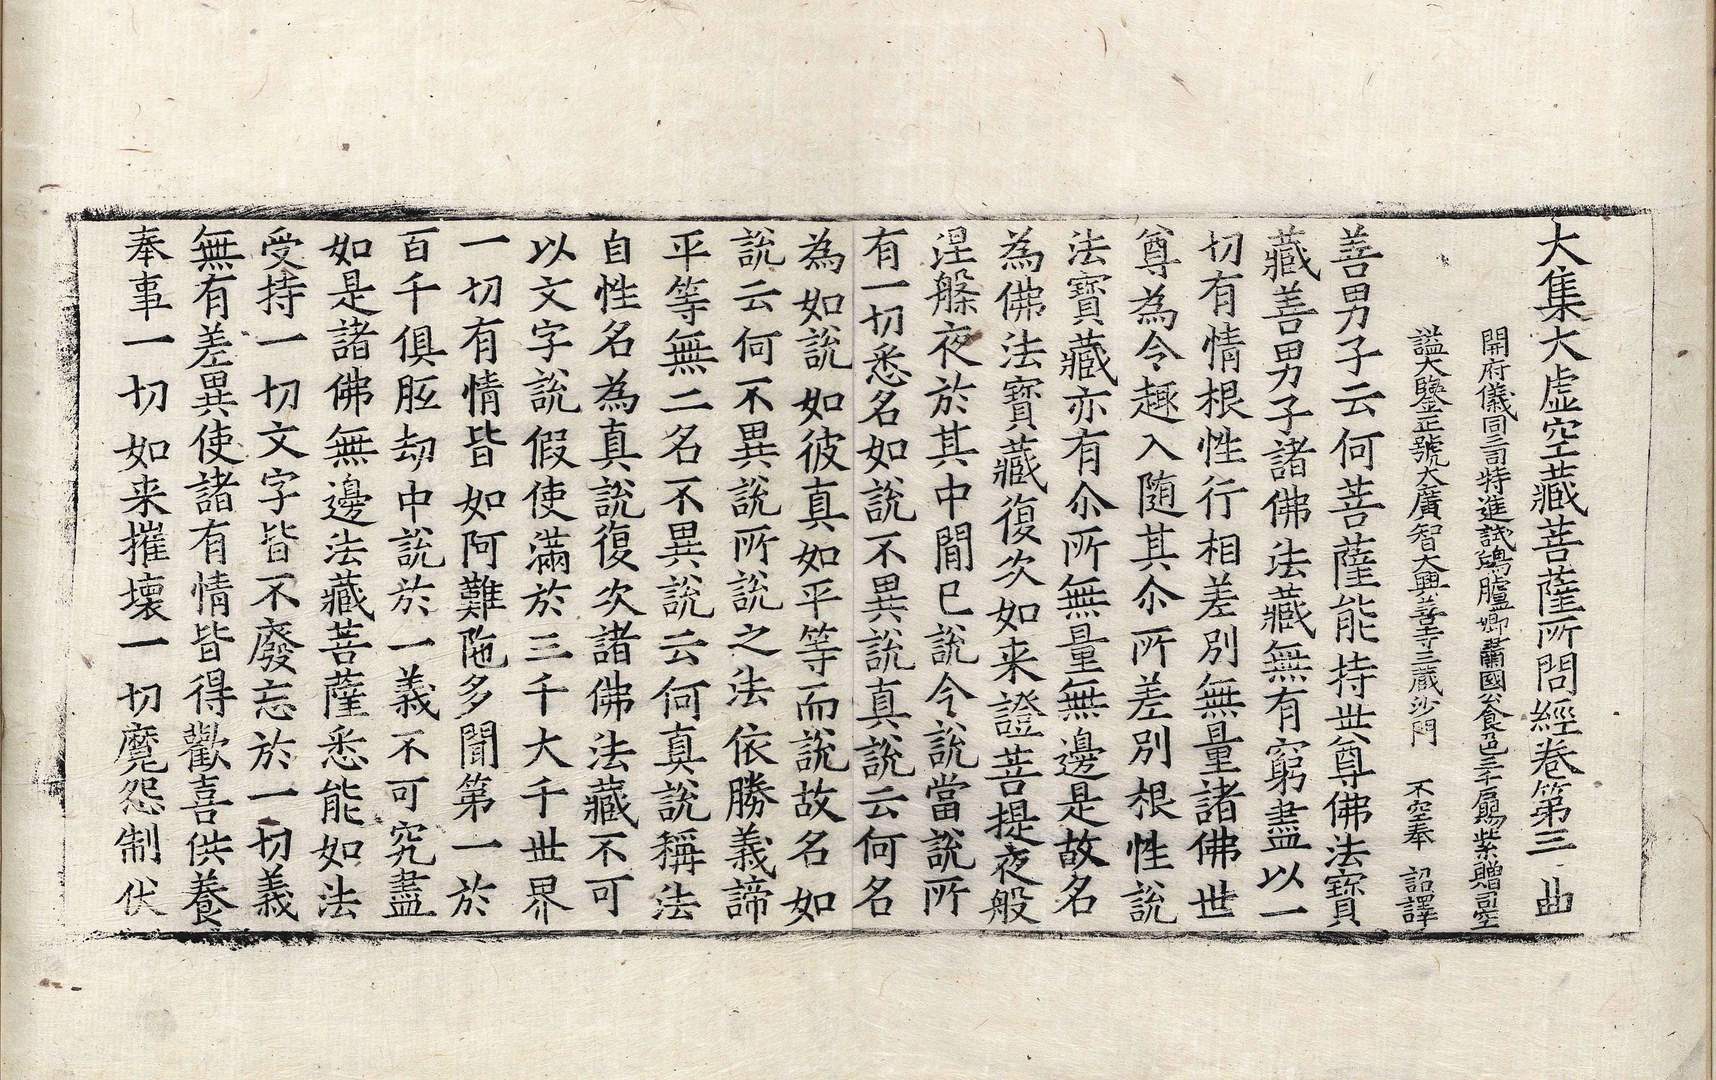 大集大虛空藏菩薩所問經卷第三 曲
開府儀同三司特進試鴻臚卿肅國公食邑三千戶賜紫贈司空
謚大鑒正號大廣智大興善寺三藏沙門 不空奉 詔譯
善男子云何菩薩能持世尊佛法寶
藏善男子諸佛法藏無有窮盡以一
切有情根性行相差別無量諸佛世
尊為令趣入随其尒所差別根性說
法寶藏亦有尒所無量無邊是故名
為佛法寶藏復次如来證菩提夜般
涅槃夜於其中閒已說今說當說所
有一切悉名如說不異說真說云何名
為如說如彼真如平等而說故名如
說云何不異說所說之法依勝義諦
平等無二名不異說云何真說稱法
自性名為真說復次諸佛法藏不可
以文字說假使滿於三千大千世界
一切有情皆如阿難陁多聞第一於
百千俱胝劫中說於一義不可究盡
如是諸佛無邊法藏菩薩悉能如法
受持一切文字皆不廢忘於一切義
無有差異使諸有情皆得歡喜供養
奉事一切如来摧壞一切魔怨制伏